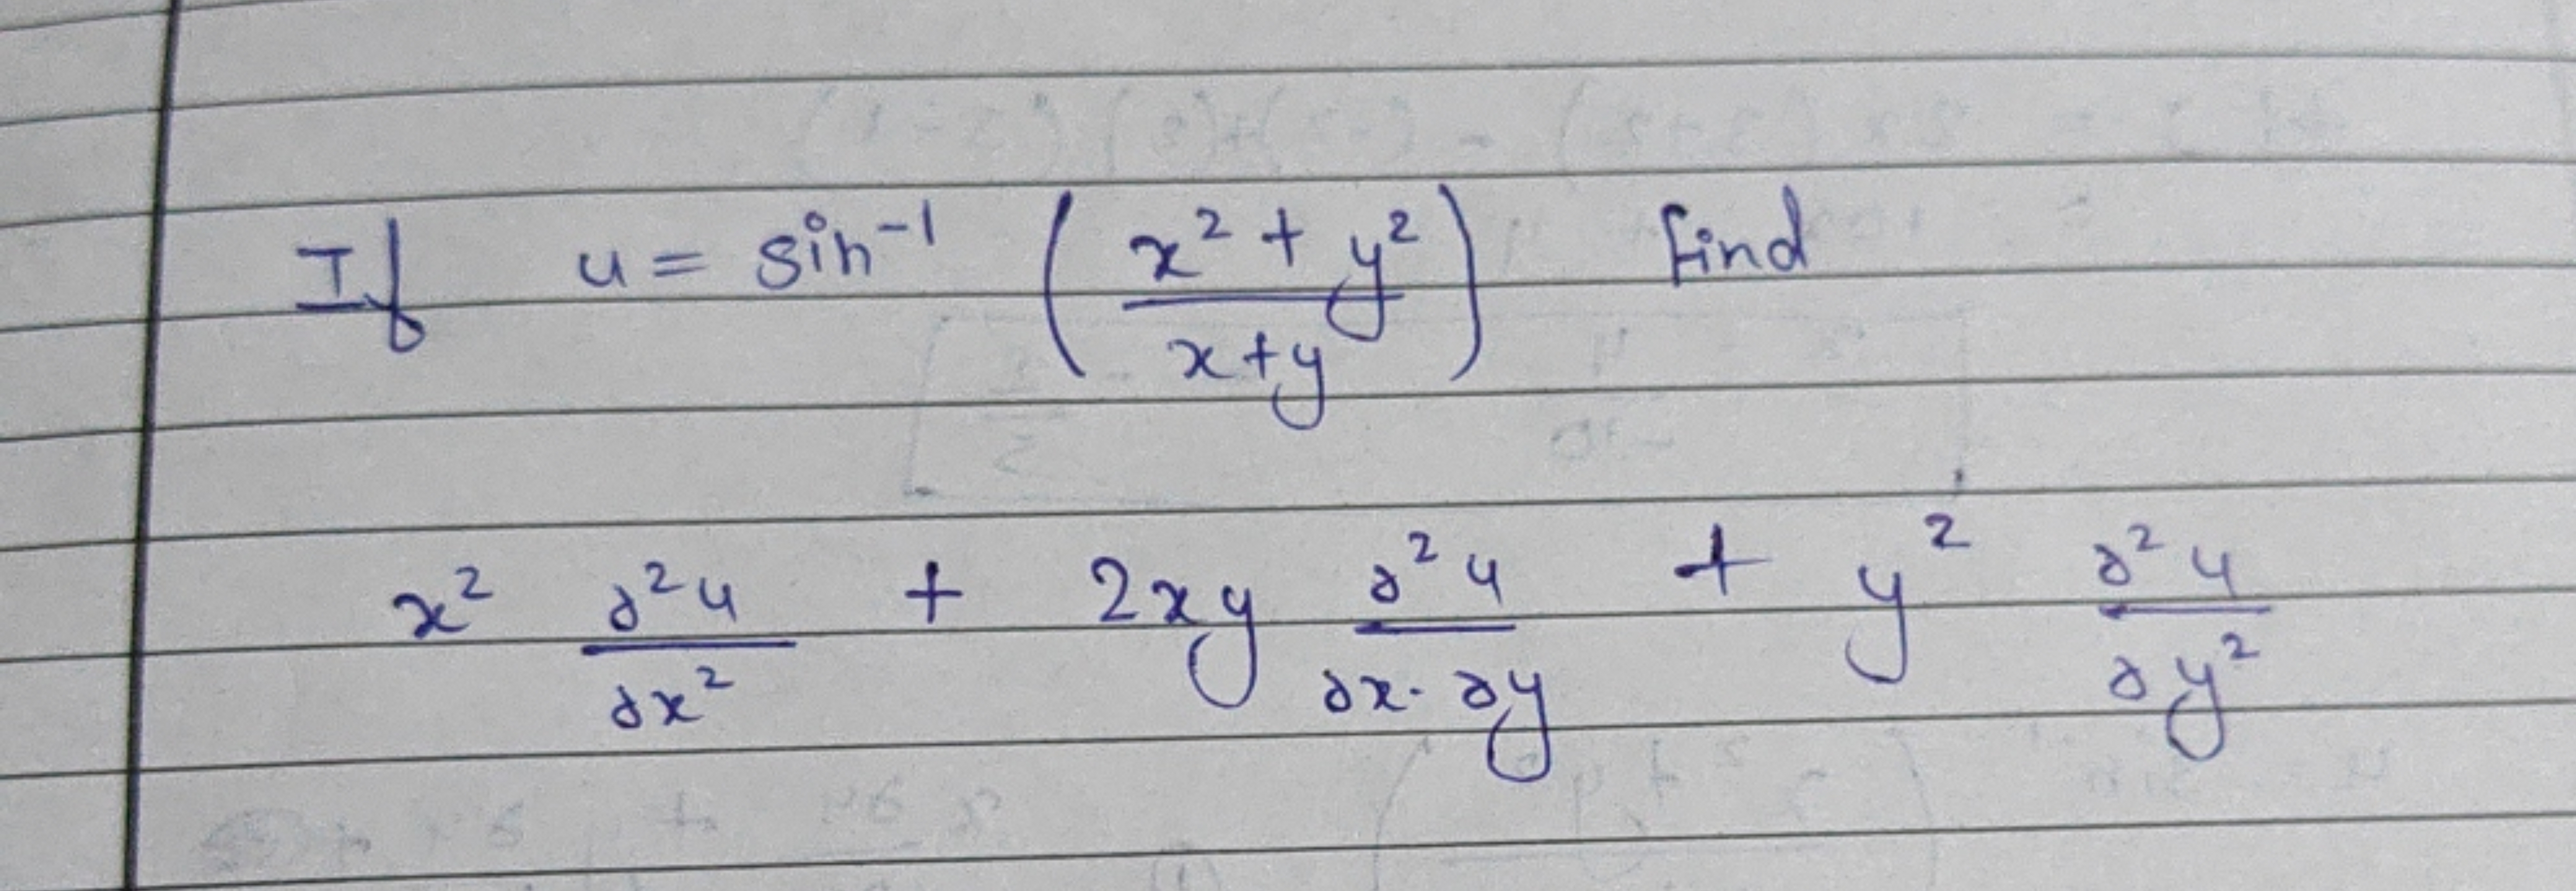 If u = sin⁻¹ ( (x² + y²) / (x+y) ) find
x² ∂²u/∂x² + 2xy ∂²u/∂x·∂y + y² ∂²u/∂y²